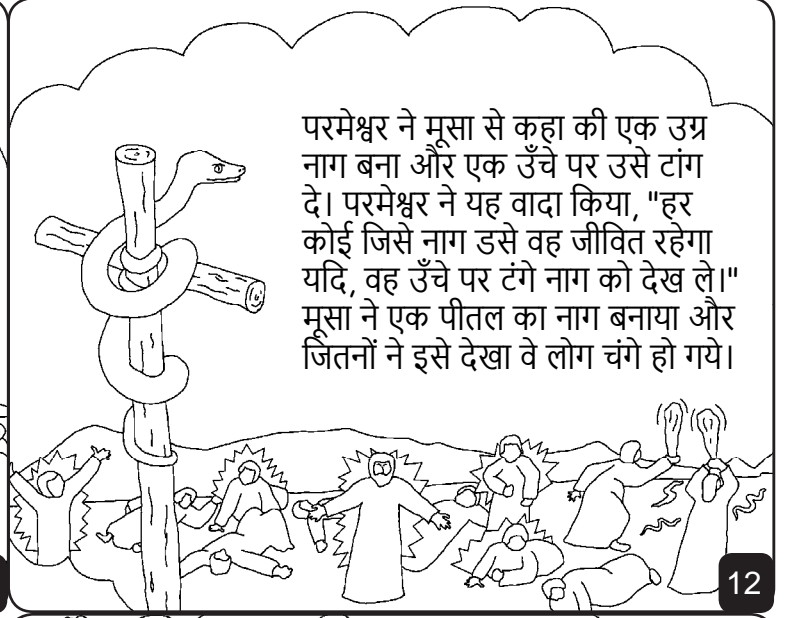 परमेश्वर ने मूसा से कहा की एक उग्र
नाग बना और एक उँचे पर उसे टांग
दे। परमेश्वर ने यह वादा किया, "हर
कोई जिसे नाग डसे वह जीवित रहेगा
यदि, वह उँचे पर टंगे नाग को देख ले।"
मूसा ने एक पीतल का नाग बनाया और
जितनों ने इसे देखा वे लोग चंगे हो गये।
12